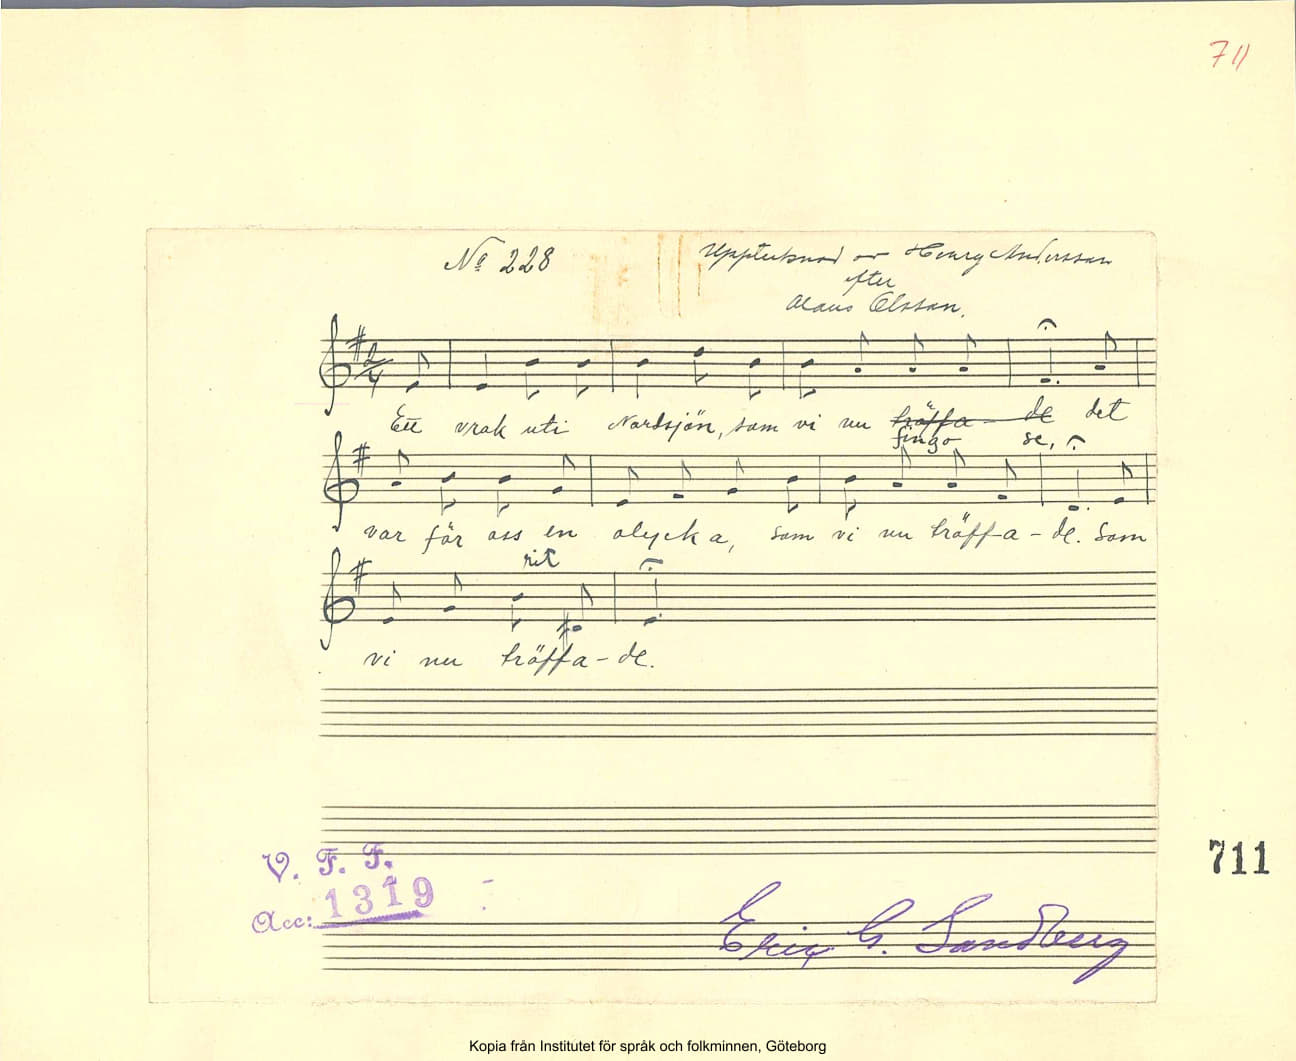 711
No 228
Upptecknad av Henry Andersson
efter
Olaus Olsson.
2/4
Ett vrak uti Nordsjön, som vi nu träffa - de det
fingo se,
var för oss en olycka, som vi nu träff-a - de. Som
rit
vi nu träffa - de.
V. F. F.
Acc: 1319
711
Eric G. Sandberg
Kopia från Institutet för språk och folkminnen, Göteborg